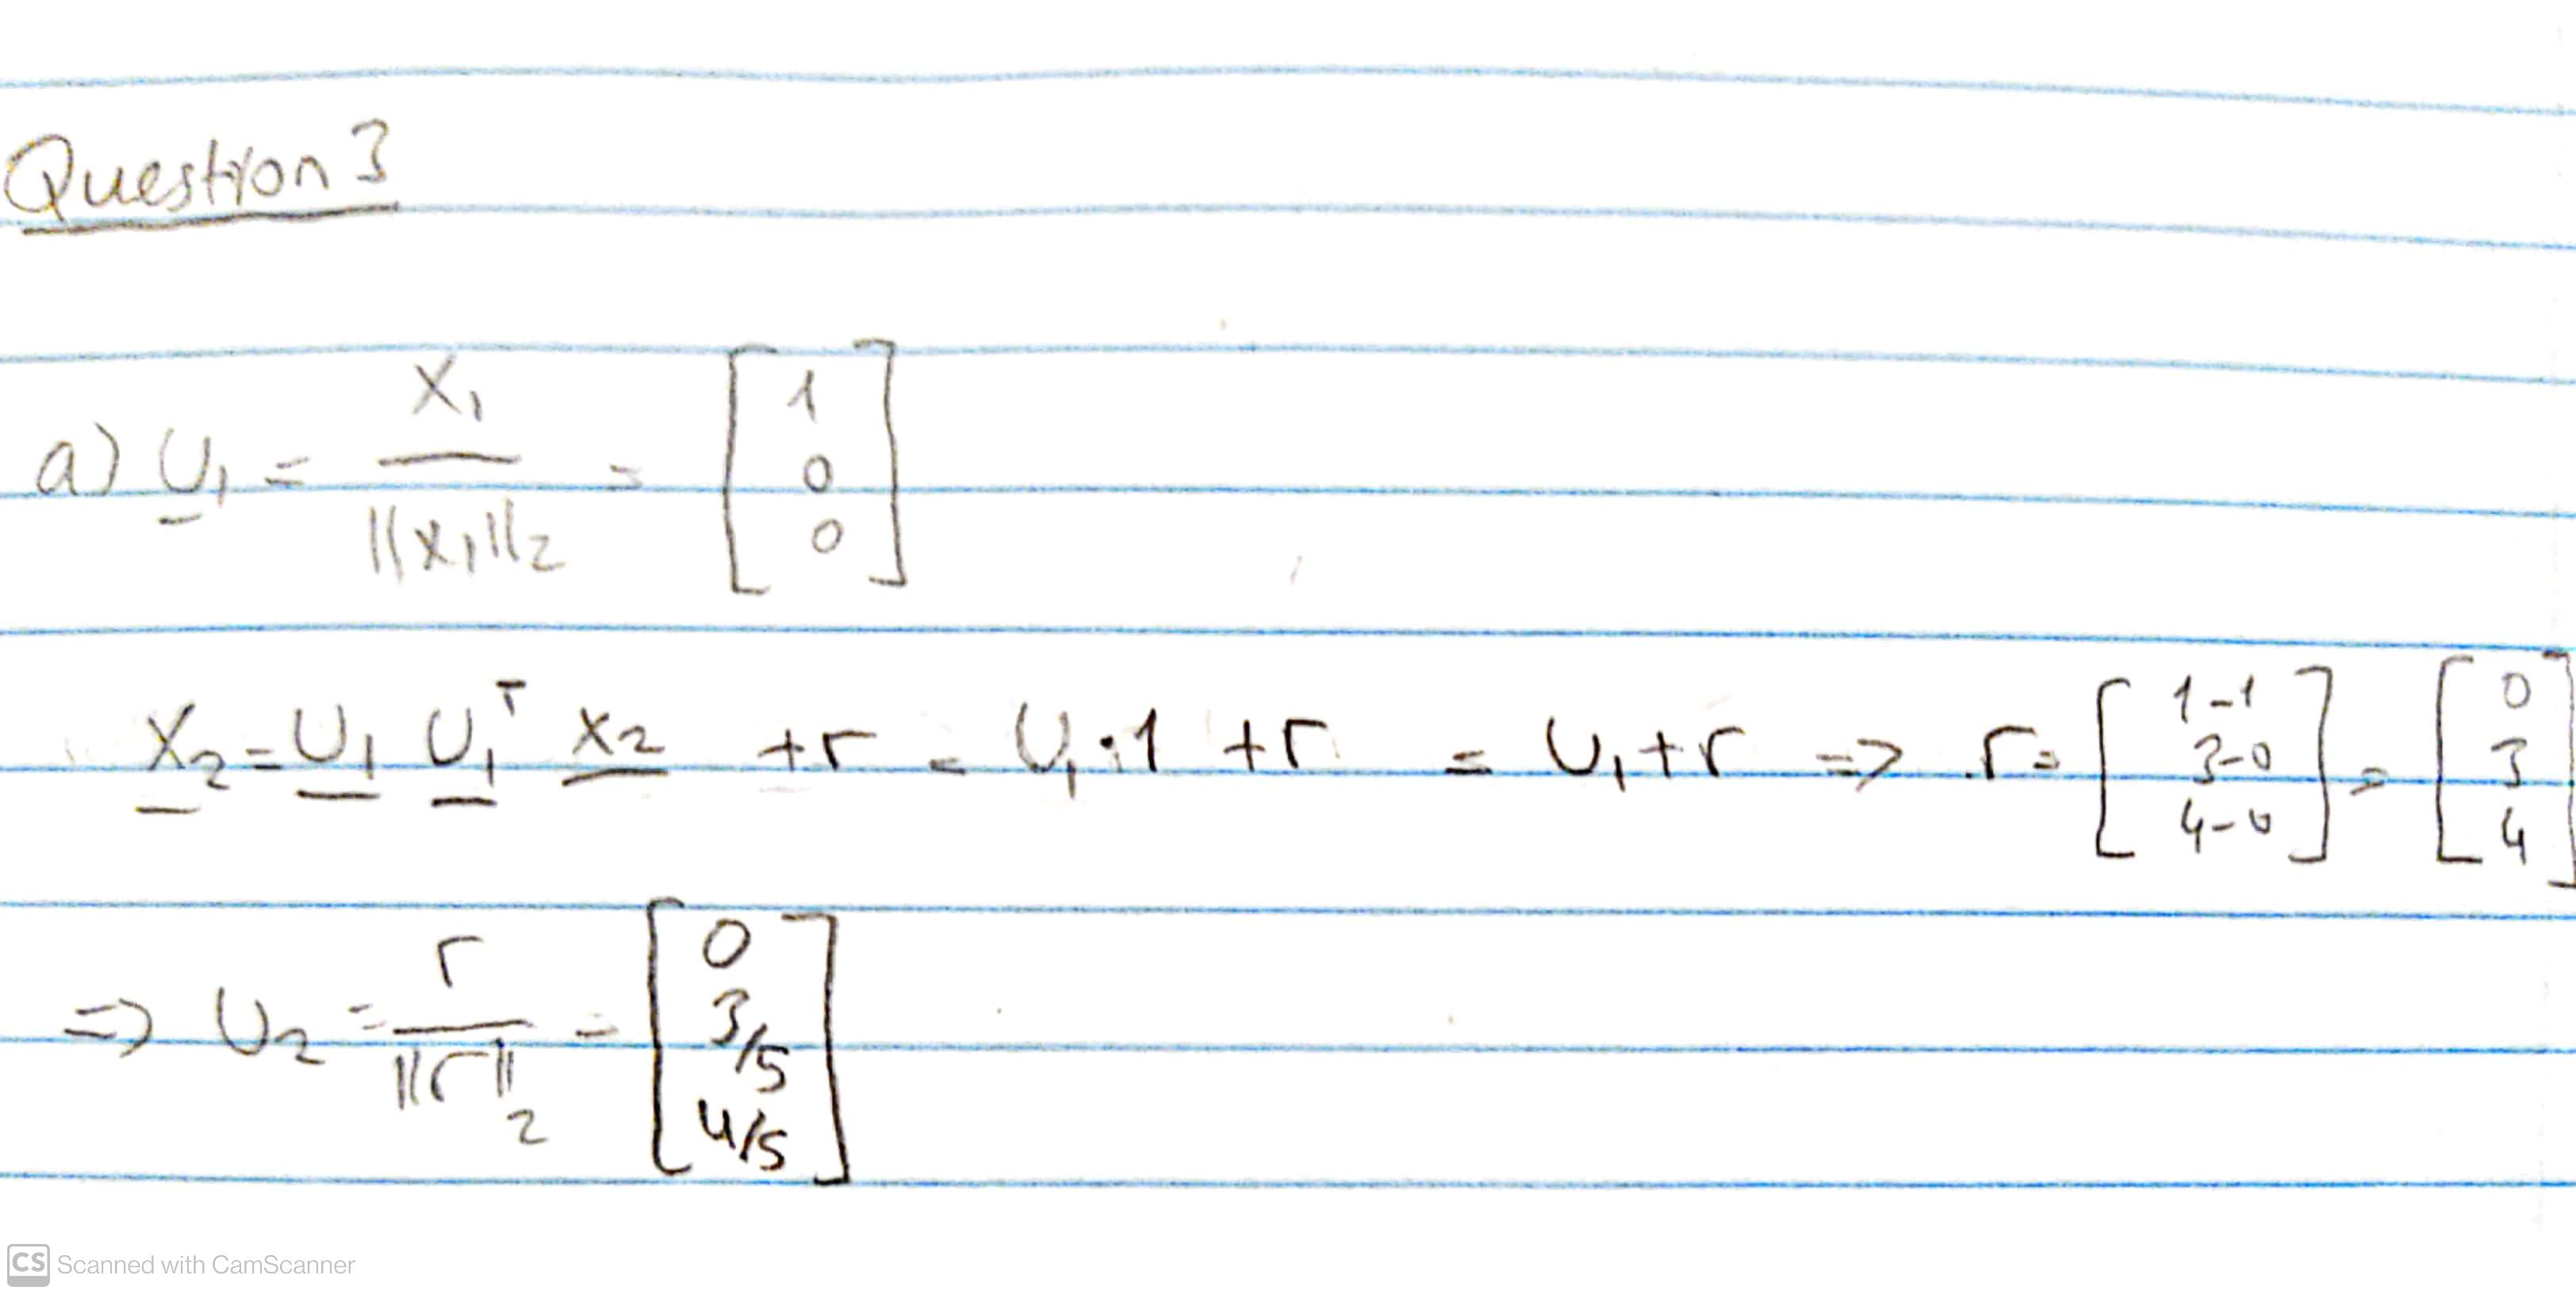 Question 3
a) U₁ = X₁ / ||X₁||₂ = [1 0 0]
X₂ = U₁ U₁ᵀ X₂ + r = U₁·1 + r = U₁ + r => r = [1-1 3-0 4-0] = [0 3 4]
=> U₂ = r / ||r||₂ = [0 3/5 4/5]
CS Scanned with CamScanner